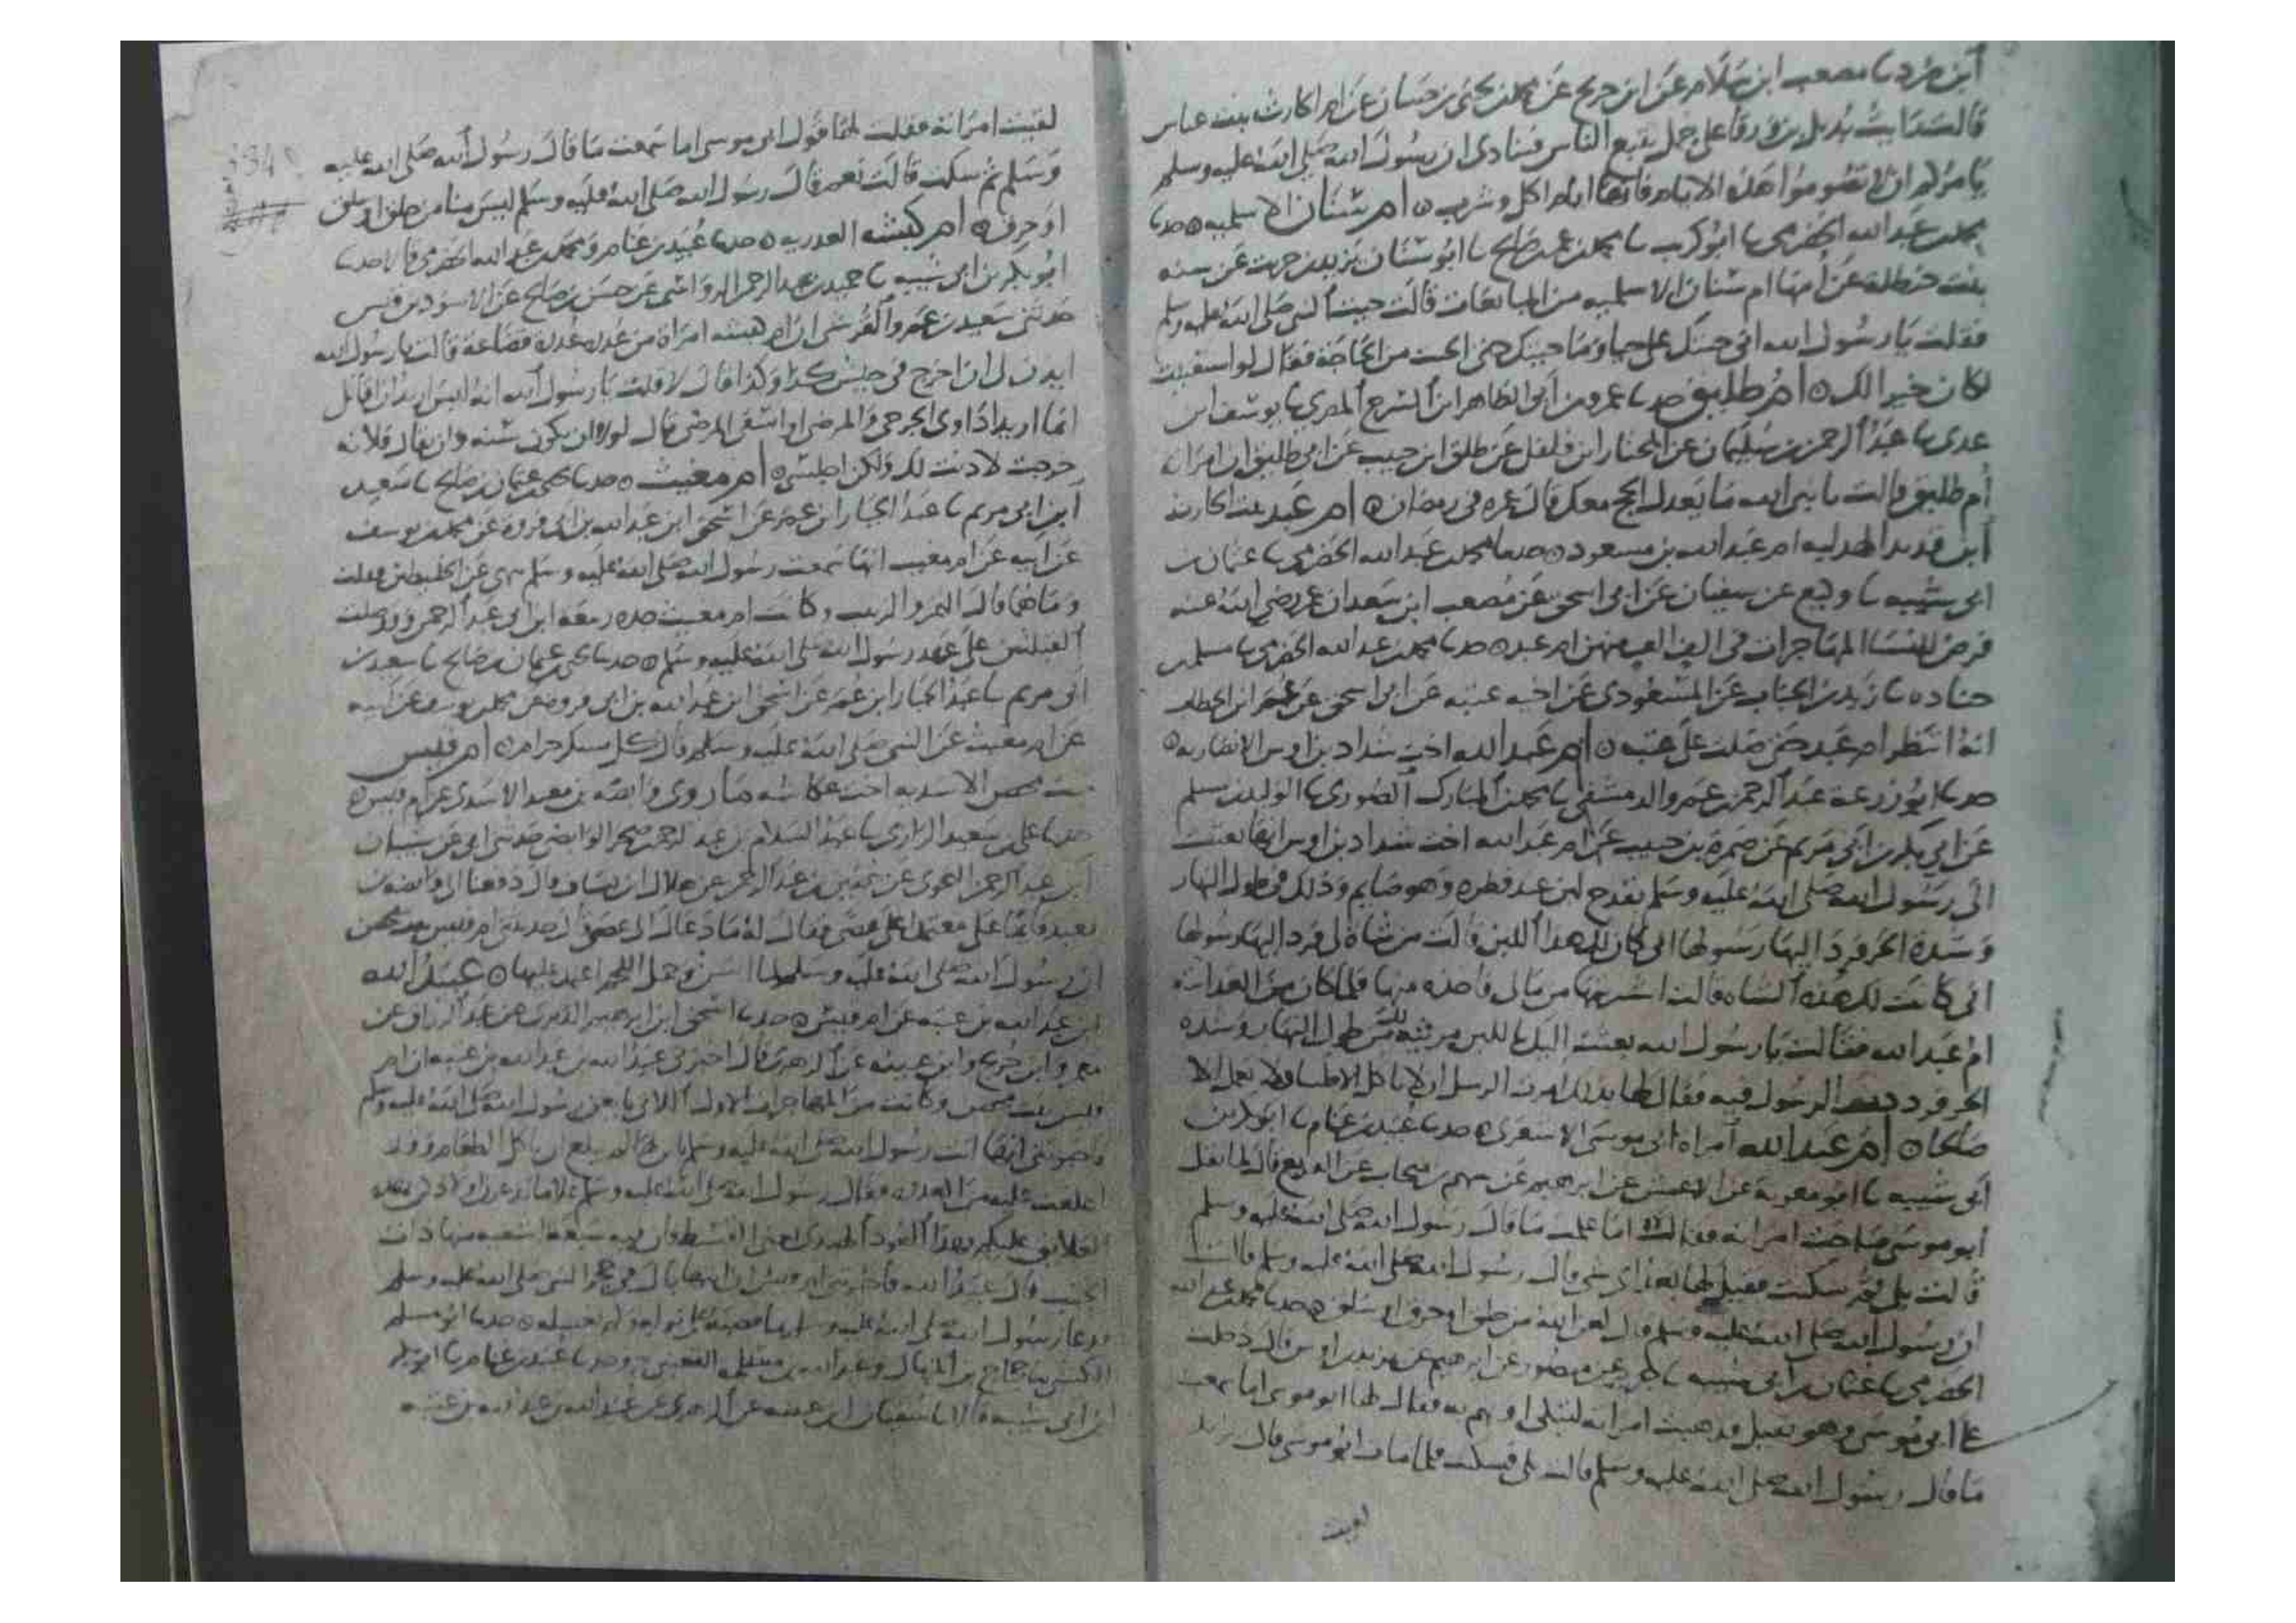 ابن مرد نا مصعب ابن سلام عن ابن جريج عن محمد بن يحيى بن حبان عن ام الحارث بنت عياش
قالت رايت بديل بن ورقا على جمل يتبع الناس فينادى ان رسول الله صلى الله عليه وسلم
يامركم ان لا تصوموا هذه الايام فانها ايام اكل وشرب ه ام سنان الاسلميه ه حدثنا
محمد بن عبد الله الحضرمى نا ابو كريب نا محمد بن عمر بن صالح نا ابو سنان يزيد بن حريث عن
بنت حنظلة عن امها ام سنان الاسلميه من المبايعات قالت جيت النبى صلى الله عليه وسلم
فقلت يا رسول الله انى جيتك على حيا وما جيتك حتى الجيت من الحاجة فقال لو استغنيت
لكان خيرا لك ه ام طليق حدثنا عمرو بن ابى الطاهر ابن السرح المصرى نا يوسف ابن
عدى نا عبد الرحمن بن سليمان عن المختار ابن فلفل عن طلق ابن حبيب عن ابى طليق ان امراته
ام طليق قالت يا نبى الله ما يعدل الحج معك قال عمره فى رمضان ه ام عبد بنت الحارث
ابن الهدليه ام عبد الله بن مسعود ه حدثنا محمد بن عبد الله الحضرمى نا عثمان بن
ابى شيبه نا وكيع عن سفيان عن ابى اسحق عن مصعب ابن سعد ان عمر رضى الله عنه
فرض للنسا المهاجرات فى الف الف منهن ام عبد ه حدثنا محمد بن عبد الله الحضرمى نا مسلم بن
جناده نا زيد بن الحباب عن المسعودى عن اخيه عتبه عن ابى اسحق عن عمر ابن الخطاب
انه انتظر ام عبد حتى صلت على عتبه ه ام عبد الله اخت شداد بن اوس الانصاريه ه
حدثنا ابو زرعة عبد الرحمن بن عمرو الدمشقى نا محمد بن المبارك الصورى نا الوليد بن مسلم
عن ابى بكر بن ابى مريم عن ضمرة بن حبيب عن ام عبد الله اخت شداد بن اوس انها بعثت
الى رسول الله صلى الله عليه وسلم بقدح لبن عند فطره وهو صايم وذلك فى طول النهار
وشدة الحر فرد اليها رسولها انى كان لك هذا اللبن قالت من شاة لى فرد اليها رسولها
انى كانت لك هذه الشاه قالت اشتريتها من مالى فاخذه منها فلما كان من الغد اتته
ام عبد الله فقالت يا رسول الله بعثت اليك باللبن مرثية لك من طول النهار وشدة
الحر فرددت الرسول فيه فقال لها بذلك امرت الرسل ان لا ياكل الا طيبا ولا تعمل الا
صالحا ه ام عبد الله امراة ابى موسى الاشعرى ه حدثنا عبيد بن غنام نا ابو بكر بن
ابى شيبه نا ابو معوية عن الاعمش عن ابرهيم عن سهم بن منجاب عن القرثع قال لما ثقل
ابو موسى صاحت امراته فقال لها اما علمت ما قال رسول الله صلى الله عليه وسلم
قالت بلى ثم سكتت فقيل لها بعد اى شى قال رسول الله صلى الله عليه وسلم قالت
ان رسول الله صلى الله عليه وسلم قال لعن الله من حلق او خرق او سلق ه حدثنا محمد بن عبد الله
الحضرمى نا عثمان بن ابى شيبه نا جرير عن منصور عن ابرهيم عن يزيد بن اوس قال دخلت
على ابى موسى وهو ثقيل فذهبت امراته لتبكى او تهم به فقال لها ابو موسى اما سمعت
ما قال رسول الله صلى الله عليه وسلم قالت بلى فسكتت فلما مات ابو موسى قال يزيد
لقيت
لقيت امراته فقلت لها قول ابى موسى اما سمعت ما قال رسول الله صلى الله عليه
وسلم ثم سكت قالت نعم قال رسول الله صلى الله عليه وسلم ليس منا من حلق او سلق
او خرق ه ام كبشه العدريه ه حدثنا عبيد بن غنام ومحمد بن عبد الله الحضرمى قالا حدثنا
ابو بكر بن ابى شيبه نا حميد بن عبد الرحمن الرواسى عن حسن بن صالح عن الاسود بن قيس
حدثنى سعيد بن عمرو القرشى ان ام كبشه امراة من عدره عدرة قضاعة قالت يا رسول الله
ايذن لى ان اخرج فى جيش كذا وكذا قال لا قلت يا رسول الله انه ليس اريد ان اقاتل
انما اريد اداوى الجرحى والمرضى او اسقى المرضى قال لولا ان يكون سنه وان يقال فلانه
خرجت لاذنت لك ولكن اجلسى ه ام مغيث ه حدثنا يحيى بن عثمان بن صالح نا سعيد
ابن ابى مريم نا عبد الجبار ابن عمر عن اسحق ابن عبد الله بن ابى فروه عن محمد بن يوسف
عن ابيه عن ام مغيث انها سمعت رسول الله صلى الله عليه وسلم ينهى عن الخليطين فقلت
وما هما قال التمر والزبيب وكانت ام مغيث جده ربيعه ابن ابى عبد الرحمن وقد صلت
القبلتين على عهد رسول الله صلى الله عليه وسلم ه حدثنا يحيى بن عثمان بن صالح نا سعيد بن
ابى مريم نا عبد الجبار ابن عمر عن اسحق ابن عبد الله بن ابى فروه عن محمد بن يوسف عن ابيه
عن ام مغيث عن النبى صلى الله عليه وسلم قال كل مسكر حرام ه ام قيس
بنت محصن الاسديه اخت عكاشه ما روى وابصه بن معبد الاسدى عن ام قيس ه
حدثنا على بن سعيد الرازى نا عبد السلام بن عبد الرحمن بن صخر الوابصى حدثنى ابى عن شيبان
ابن عبد الرحمن النحوى عن حصين بن عبد الرحمن عن هلال ابن يساف قال دفعنا الى وابصه بن
معبد قايما على معتمدا على عصى فقال له ما دعاك الى العصى قال حدثتنى ام قيس بنت محصن
ان رسول الله صلى الله عليه وسلم لما اسن وحمل اللحم اعتمد عليها ه عبيد الله
ابن عبد الله بن عتبه عن ام قيس ه حدثنا اسحق ابن ابرهيم الدبرى عن عبد الرزاق عن
معمر وابن جريج وابن عيينه عن الزهرى قال اخبرنى عبيد الله بن عبد الله بن عتبه ان ام
قيس بنت محصن وكانت من المهاجرات الاول اللاتى بايعن رسول الله صلى الله عليه وسلم
واخبرتنى انها اتت رسول الله صلى الله عليه وسلم بابن لها لم يبلغ ان ياكل الطعام وقد
اعلقت عليه من العذره فقال رسول الله صلى الله عليه وسلم علاما تدغرن اولادكن بهذه
العلايق عليكم بهذا العود الهندى يعنى القسط فان فيه سبعة اشفيه منها ذات
الجنب قال عبيد الله فاخبرتنى ام قيس ان ابنها بال فى حجر النبى صلى الله عليه وسلم
فدعا رسول الله صلى الله عليه وسلم بما فصبه على بوله ولم يغسله ه حدثنا ابو مسلم
الكشى نا حجاج بن المنهال وعبد الله بن مسلمه القعنبى ح وحدثنا عبيد بن غنام نا ابو بكر
ابن ابى شيبه قالا نا سفيان ابن عيينه عن الزهرى عن عبيد الله بن عبد الله بن عتبه